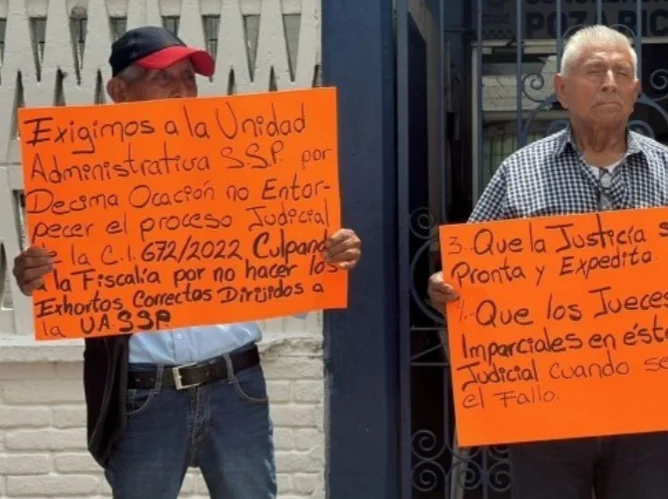 POZA RICA
Exigimos a la Unidad
Administrativa S.S.P. por
Decima Ocación no Entor-
pecer el proceso Judicial
de la C.I. 672/2022 Culpando
a la Fiscalía por no hacer los
Exhortos Correctos Dirijidos a
la U.A.SSP.
3.-Que la Justicia s
Pronta y Expedita.
-Que los Jueces
Imparciales en ést
Judicial cuando se
el Fallo.